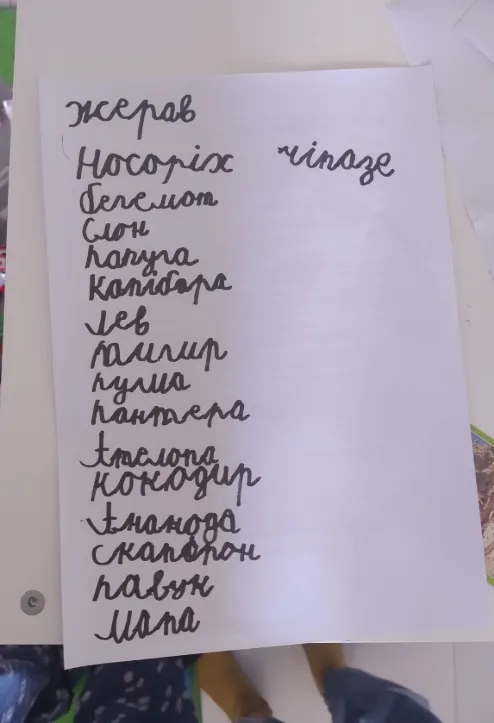 жерав
Носоріх чіпазе
бегемот
слон
папуга
капібара
лев
вампир
пума
пантера
Антелопа
кокодир
Анаконда
скапорон
павук
мапа